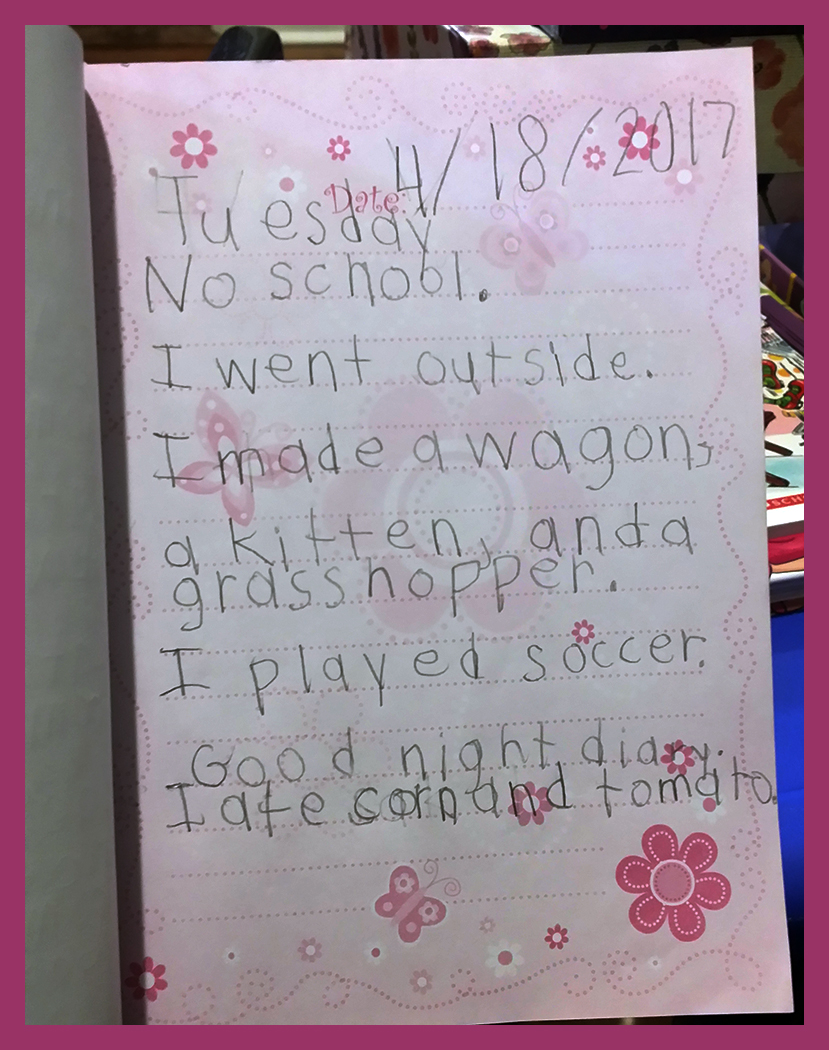 Date: 4/18/2017
Tuesday
No school.
I went outside.
I made a wagon,
a kitten, and a
grasshopper.
I played soccer.
Good night, diary.
I ate corn and tomato.